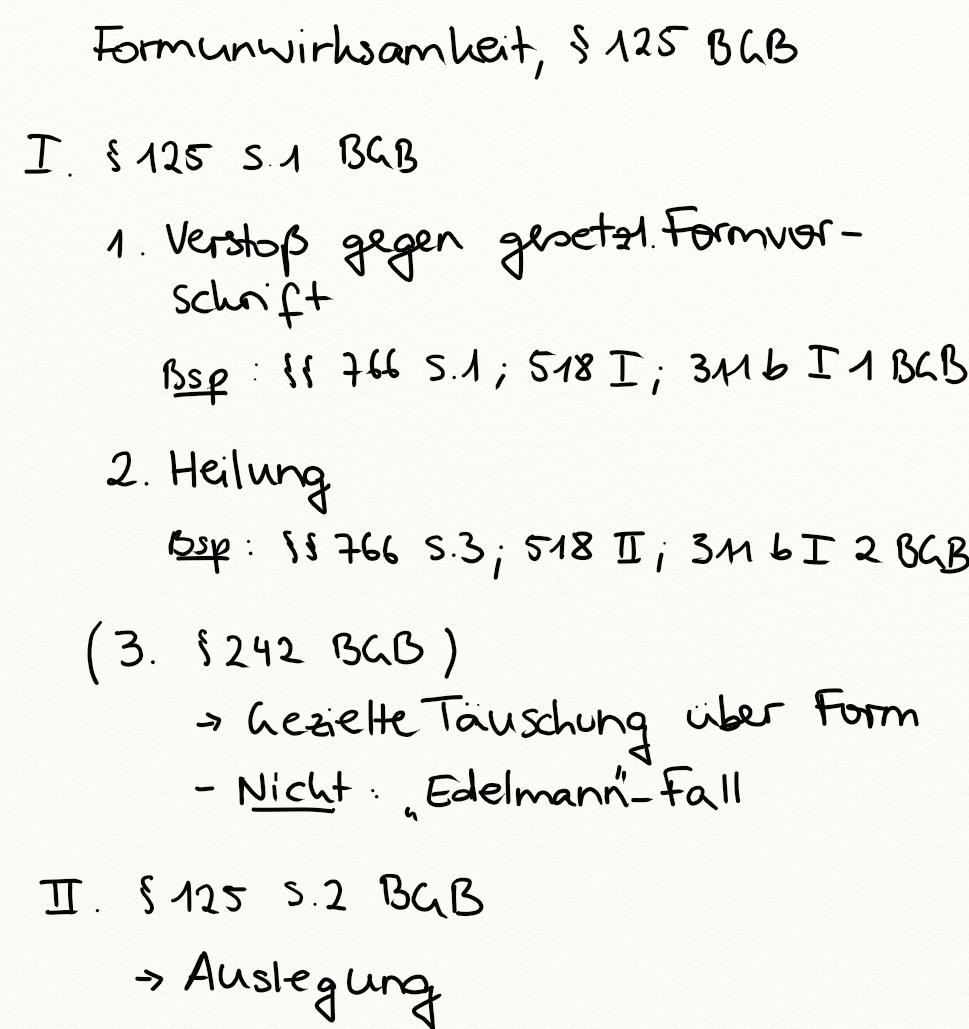 Formunwirksamkeit, § 125 BGB
I. § 125 S.1 BGB
1. Verstoß gegen gesetzl. Formvor-
schrift
Bsp: §§ 766 S.1; 518 I; 311 b I 1 BGB
2. Heilung
Bsp: §§ 766 S.3; 518 II; 311 b I 2 BGB
(3. § 242 BGB)
→ Gezielte Täuschung über Form
- Nicht: „Edelmann"-Fall
II. § 125 S.2 BGB
→ Auslegung